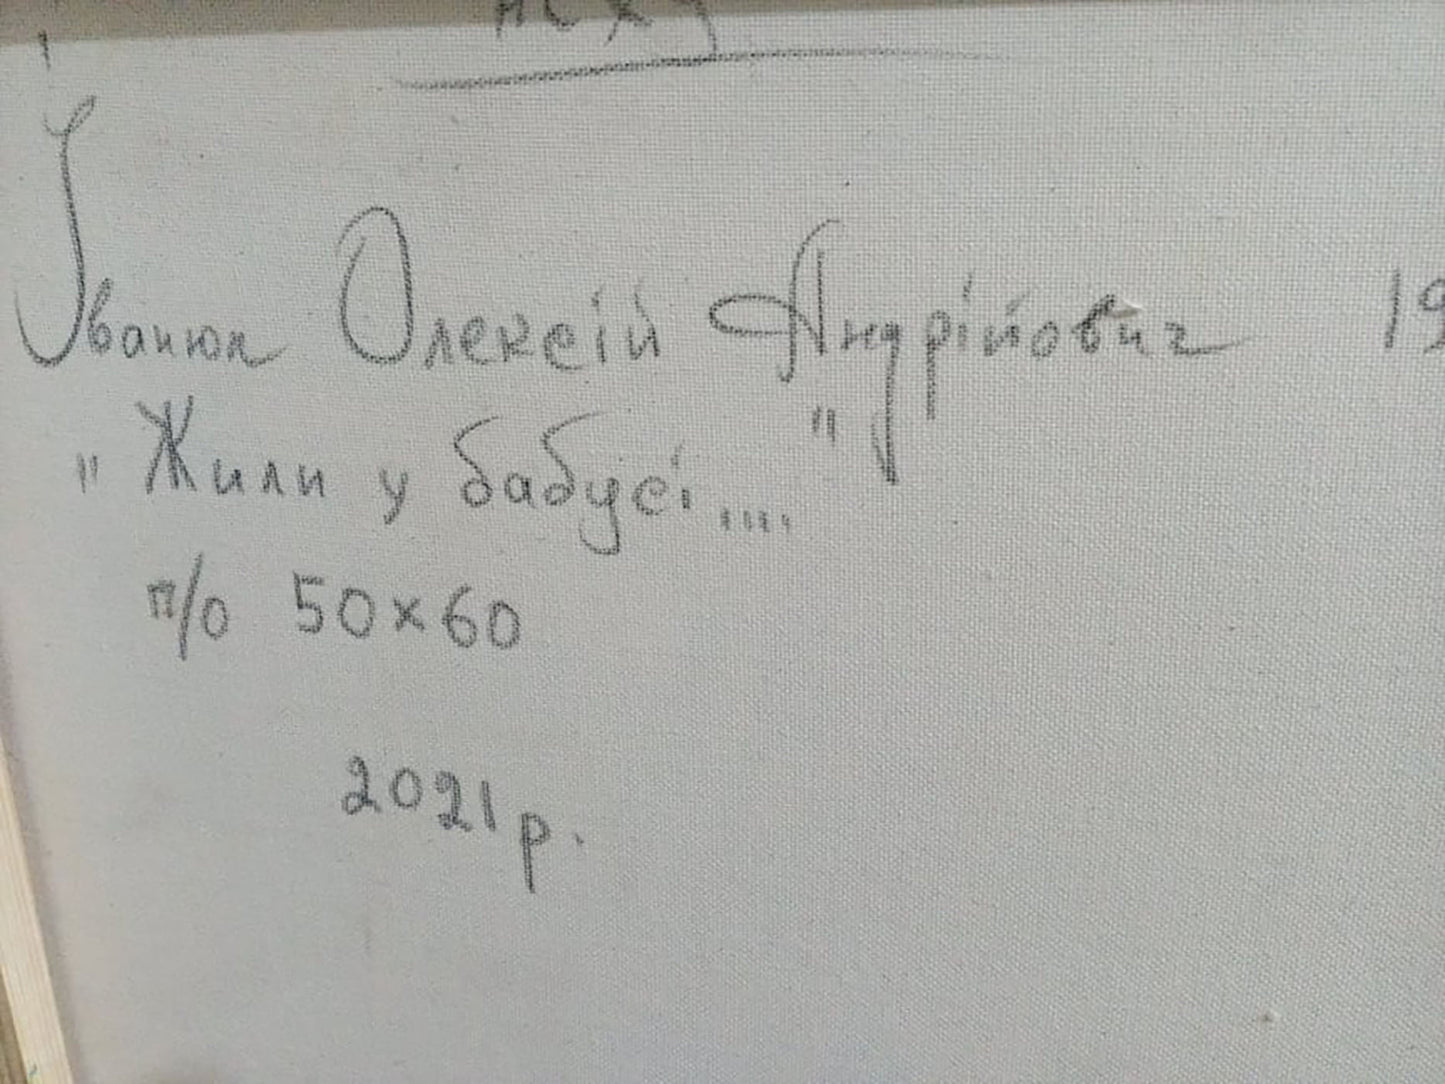 Іванюк Олексій Андрійович 19
"Жили у бабусі...."
п/о 50х60
2021р.